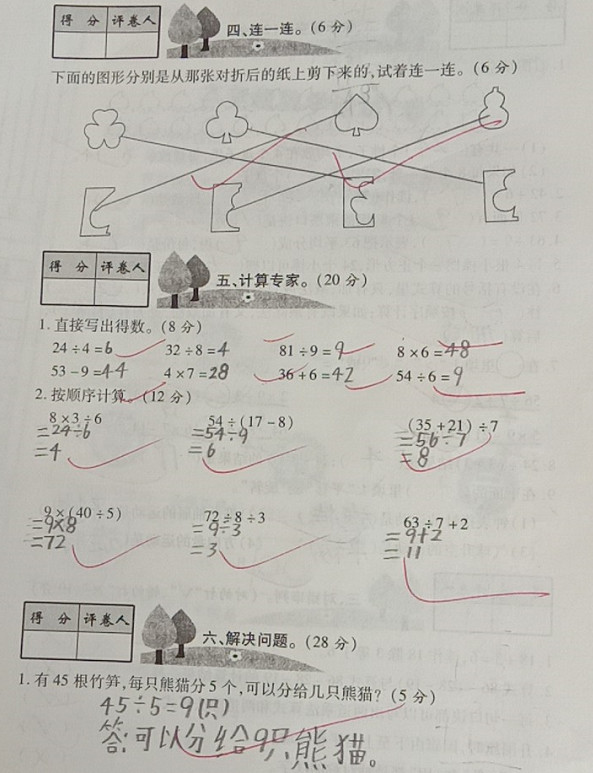 得 分 评卷人
四、连一连。(6 分)
下面的图形分别是从那张对折后的纸上剪下来的,试着连一连。(6 分)
得 分 评卷人
五、计算专家。(20 分)
1. 直接写出得数。(8 分)
24÷4=6 32÷8=4 81÷9=9 8×6=48
53-9=44 4×7=28 36+6=42 54÷6=9
2. 按顺序计算。(12 分)
8×3÷6 54÷(17-8) (35+21)÷7
=24÷6 =54÷9 =56÷7
=4 =6 =8
9×(40÷5) 72÷8÷3 63÷7+2
=9×8 =9÷3 =9+2
=72 =3 =11
得 分 评卷人
六、解决问题。(28 分)
1. 有 45 根竹笋,每只熊猫分 5 个,可以分给几只熊猫? (5 分)
45÷5=9(只)
答:可以分给9只熊猫。